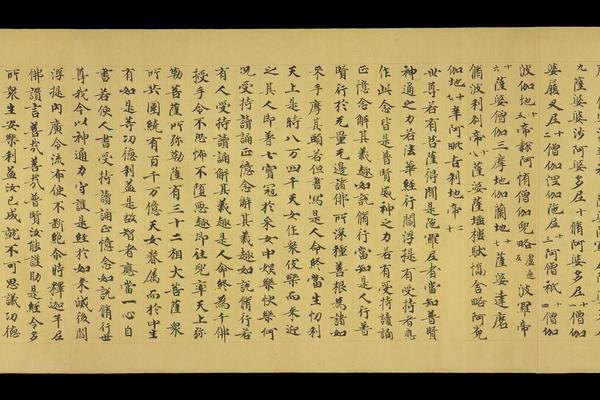 九薩婆婆沙阿婆多尼十修阿婆多尼十一僧伽
婆履叉尼十二僧伽涅伽陀尼十三阿僧祇十四僧伽
波伽地十五帝隷阿惰僧伽兜略盧遮波羅帝
十六薩婆僧伽三摩地伽蘭地十七薩婆達磨
修波利刹帝十八薩婆薩埵樓馱憍舍略阿㝹
伽地十九辛阿毗吉利地帝二十
世尊若有菩薩得聞是陀羅尼者當知普賢
神通之力若法華經行閻浮提有受持者應
作此念皆是普賢威神之力若有受持讀誦
正憶念解其義趣如說修行當知是人行普
賢行於无量无邊諸佛所深種善根爲諸如
來手摩其頭若但書寫是人命終當生忉利
天上是時八万四千天女作衆伎樂而來迎
之其人即著七寶冠於采女中娛樂快樂何
況受持讀誦正憶念解其義趣如說修行若
有人受持讀誦解其義趣是人命終爲千佛
授手令不恐怖不墮惡趣即往兜率天上弥
勒菩薩所弥勒菩薩有三十二相大菩薩衆
所共圍繞有百千万億天女眷屬而於中生
有如是等功德利益是故智者應當一心自
書若使人書受持讀誦正憶念如說修行世
尊我今以神通力守護是經於如來滅後閻
浮提內廣令流布使不斷絕尒時釋迦牟尼
佛讚言善哉善哉普賢汝能護助是經令多
所衆生安樂利益汝已成就不可思議功德